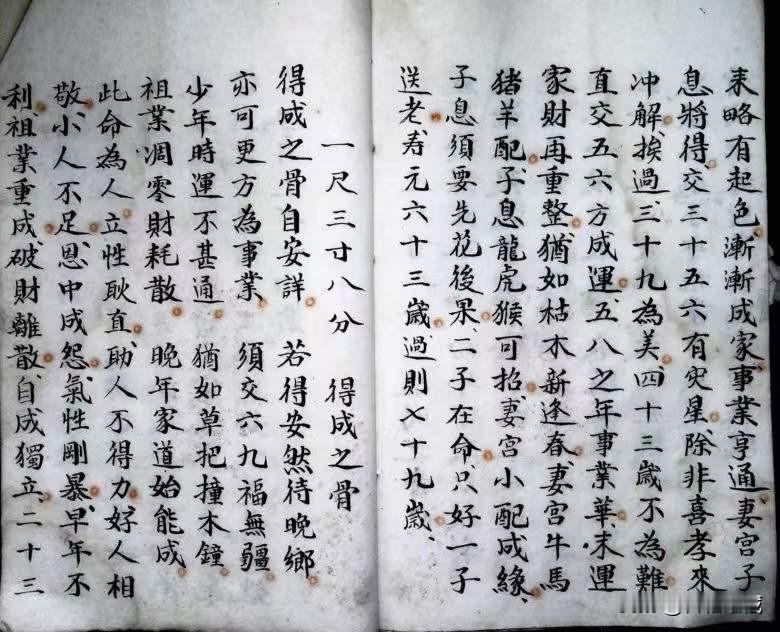 来略有起色漸漸成家事業亨通妻宮子
息將得交三十五六有灾星除非喜孝來
冲解挨過三十九為美四十三歲不為難
直交五六方成運五八之年事業華末運
家財再重整猶如枯木新逢春妻宮牛馬
猪羊配子息龍虎猴可招妻宮小配成緣
子息須要先花後果二子在命只好一子
送老寿元六十三歲過則七十九歲
一尺三寸八分 得成之骨
得成之骨自安詳 若得安然待晚鄉
亦可更方為事業 須交六九福無疆
少年時運不甚通 猶如草把撞木鐘
祖業凋零財耗散 晚年家道始能成
此命為人立性耿直助人不得力好人相
敬小人不足恩中成怨氣性剛暴早年不
利祖業重成破財離散自成獨立二十三